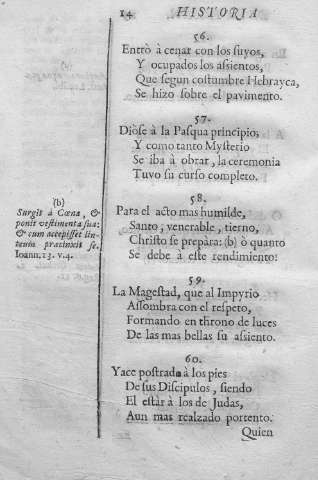 14 HISTORIA
56.
Entrò à cenar con los ſuyos,
Y ocupados los aſsientos,
Que ſegun coſtumbre Hebrayca,
Se hizo ſobre el pavimento.
57.
Diòſe à la Paſqua principio;
Y como tanto Myſterio
Se iba à obrar, la ceremonia
Tuvo ſu curſo completo.
58.
Para el acto mas humilde,
Santo, venerable, tierno,
Chriſto ſe prepàra: (b) ò quanto
Se debe à eſte rendimiento!
59.
La Mageſtad, que al Impyrio
Aſſombra con el reſpeto,
Formando en throno de luces
De las mas bellas ſu aſsiento.
60.
Yace poſtrado à los pies
De ſus Diſcipulos, ſiendo
El eſtàr à los de Judas,
Aun mas realzado portento.
Quien
(b)
Surgit à Cœna, &
ponit veſtimenta ſua:
& cum accepiſſet lin-
teum præcinxit ſe.
Ioann. 13. v. 4.